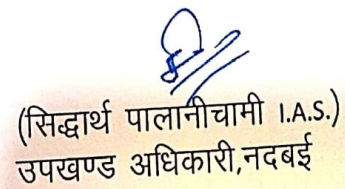 (सिद्धार्थ पालानीचामी I.A.S.)
उपखण्ड अधिकारी,नदबई